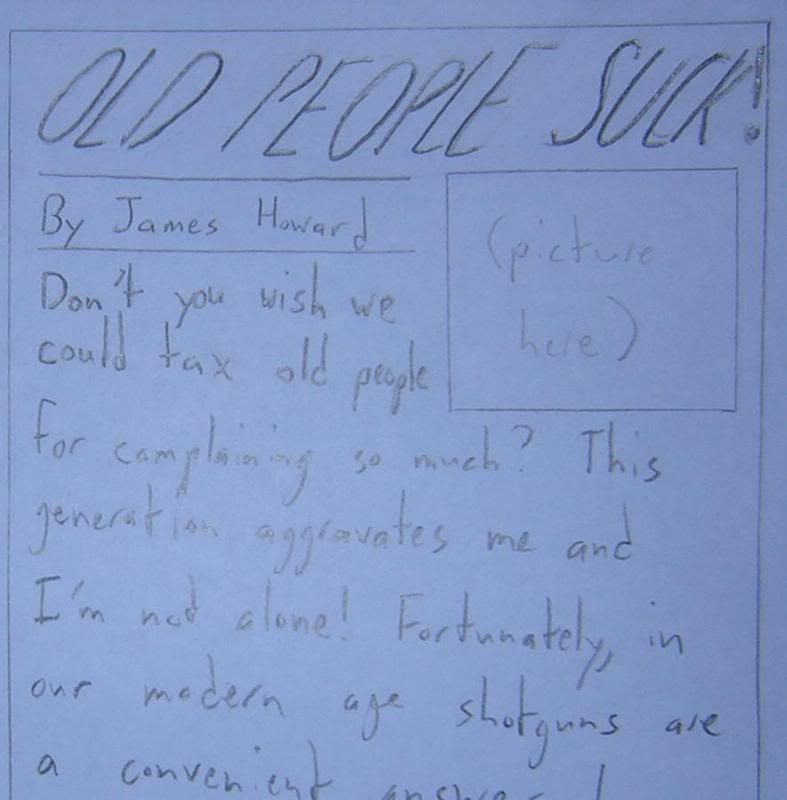 OLD PEOPLE SUCK!
By James Howard
(picture
here)
Don't you wish we
could tax old people
for complaining so much? This
generation aggravates me and
I'm not alone! Fortunately, in
our modern age shotguns are
a convenient answer!